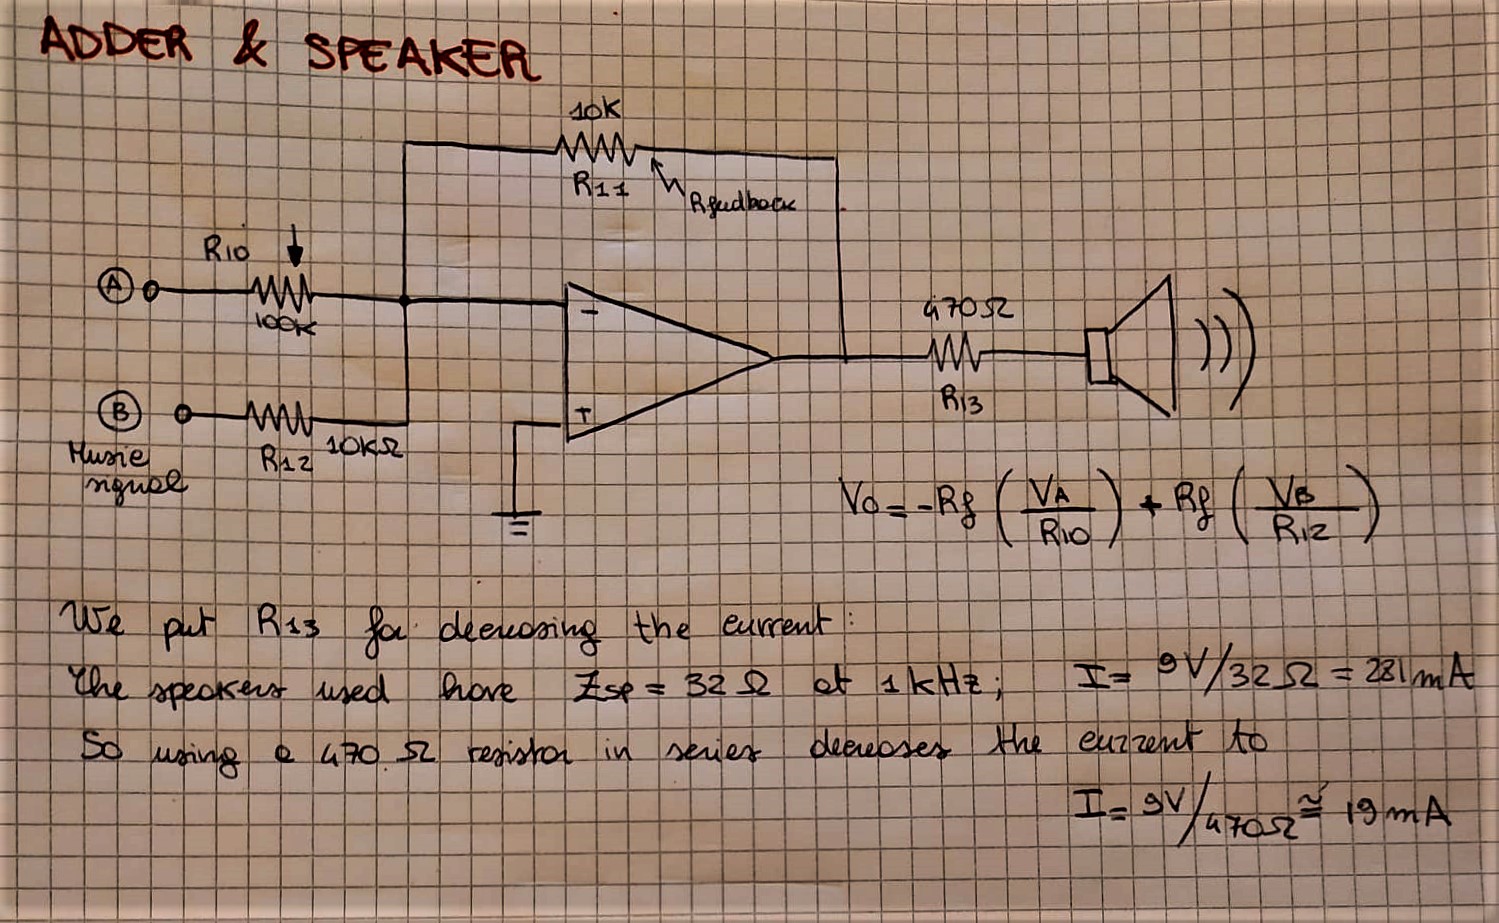 ADDER & SPEAKER
10K
R11
Rfeedback
R10
A
100K
−
470Ω
R13
B
+
10KΩ
R12
Music
signal
Vo = -Rf (VA/R10) + Rf (VB/R12)
We put R13 for decreasing the current:
The speakers used have Zsp = 32 Ω at 1 kHz; I= 9V/32 Ω = 281mA
So using a 470 Ω resistor in series decreases the current to
I= 9V/470Ω ≅ 19 mA